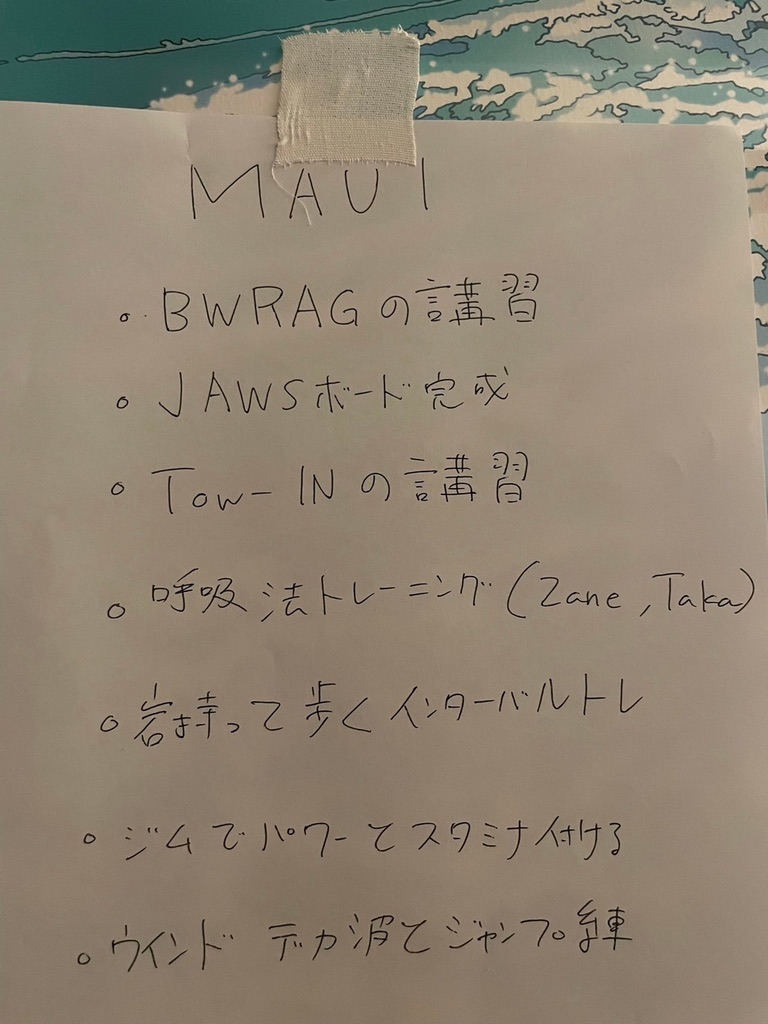 MAUI
・BWRAGの講習
○JAWSボード完成
○Tow-INの講習
○呼吸法トレーニング(Zane,Taka)
○岩持って歩くインターバルトレ
○ジムでパワーとスタミナ付ける
○ウインド デカ波とジャンプ練